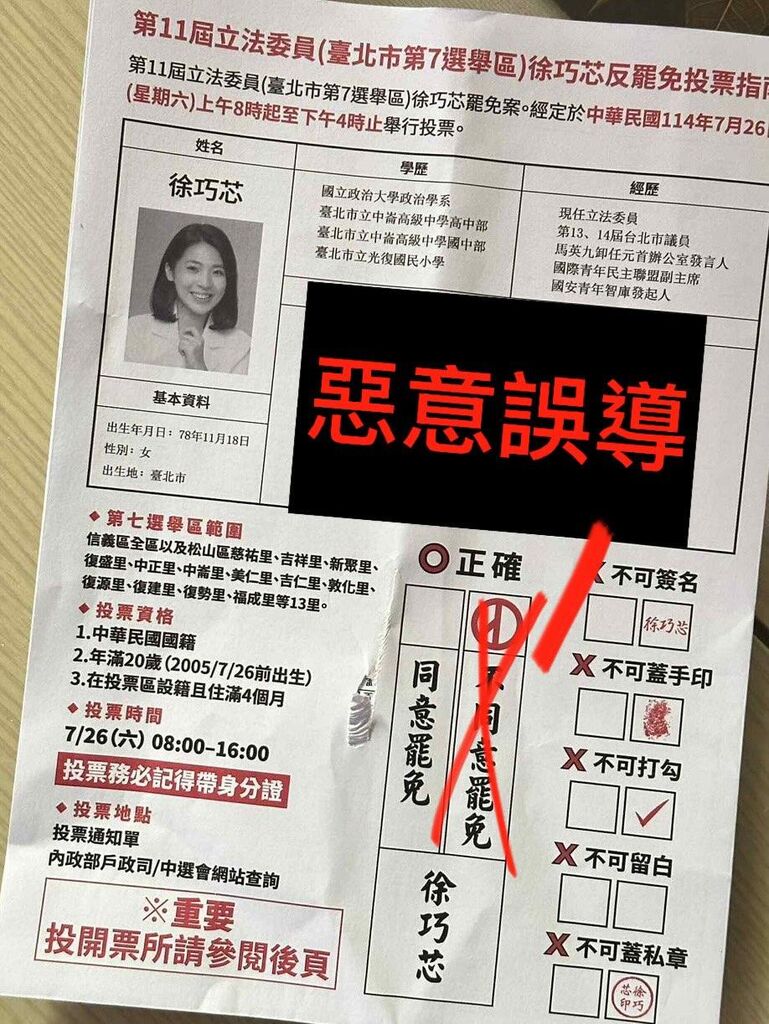 第11屆立法委員(臺北市第7選舉區)徐巧芯反罷免投票指
第11屆立法委員(臺北市第7選舉區)徐巧芯罷免案。經定於中華民國114年7月26
(星期六)上午8時起至下午4時止舉行投票。
姓名
徐巧芯
學歷
國立政治大學政治學系
臺北市立中崙高級中學高中部
臺北市立中崙高級中學國中部
臺北市立光復國民小學
經歷
現任立法委員
第13、14屆台北市議員
馬英九卸任元首辦公室發言人
國際青年民主聯盟副主席
國安青年智庫發起人
惡意誤導
基本資料
出生年月日：78年11月18日
性別：女
出生地：臺北市
◆第七選舉區範圍
信義區全區以及松山區慈祐里、吉祥里、新聚里、
復盛里、中正里、中崙里、美仁里、吉仁里、敦化里、
復源里、復建里、復勢里、福成里等13里。
◆投票資格
1.中華民國國籍
2.年滿20歲(2005/7/26前出生)
3.在投票區設籍且住滿4個月
◆投票時間
7/26(六) 08:00–16:00
投票務必記得帶身分證
◆投票地點
投票通知單
內政部戶政司/中選會網站查詢
※重要
投開票所請參閱後頁
正確
同意罷免
不同意罷免
徐巧芯
X 不可簽名
徐巧芯
X 不可蓋手印
X 不可打勾
X 不可留白
X 不可蓋私章
徐巧
芯印